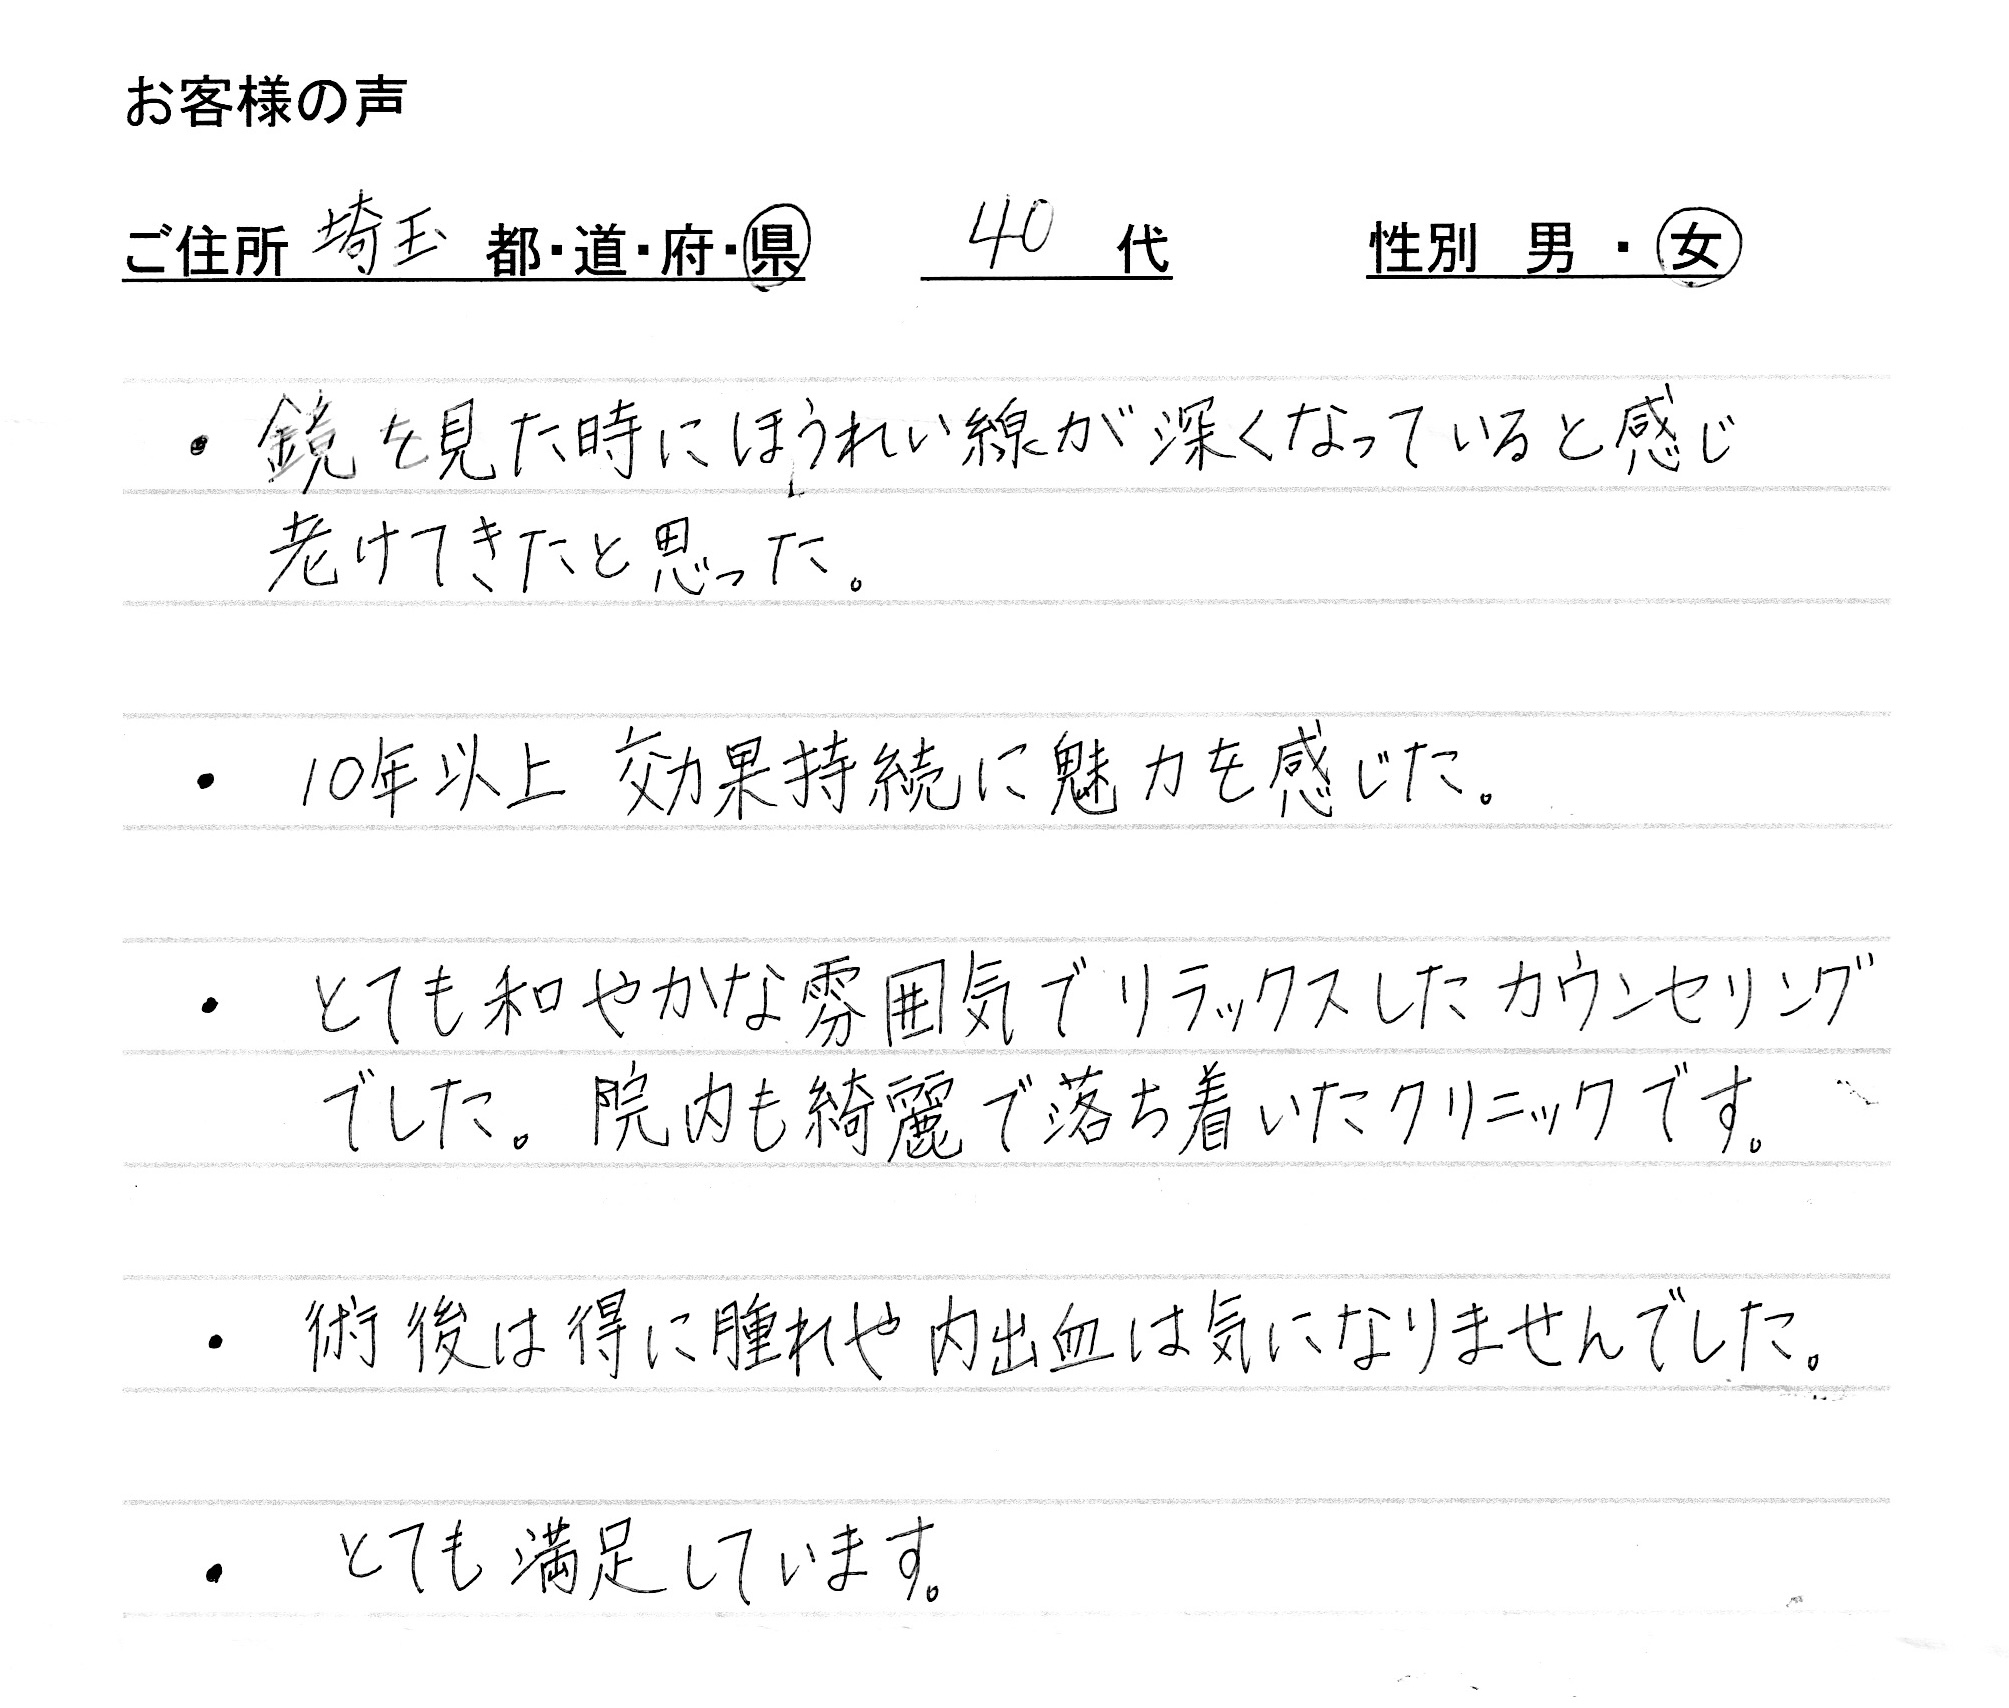 お客様の声
ご住所 埼玉 都・道・府・県 40 代 性別 男 ・ 女
・ 鏡を見た時にほうれい線が深くなっていると感じ
老けてきたと思った。
・ 10年以上 効果持続に魅力を感じた。
・ とても和やかな雰囲気でリラックスしたカウンセリング
でした。院内も綺麗で落ち着いたクリニックです。
・ 術後は得に腫れや内出血は気になりませんでした。
・ とても満足しています。